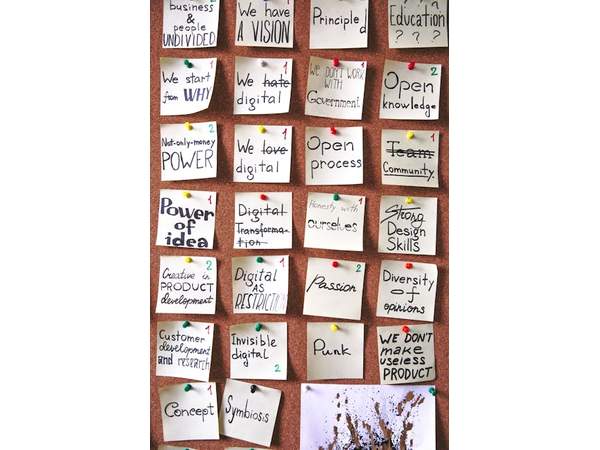 business
&
people
UNDIVIDED
We have
A VISION
Principled
Education
? ? ?
We start
from WHY
1
We hate
digital
1
WE DON'T WORK
WITH
Government
Open
knowledge
2
Not-only-money
POWER
2
We love
digital
1
Open
process
Team
Community
Power
of
idea
1
Digital
Transforma-
tion
Honesty with
ourselves
1
Strong
Design
Skills
Creative in
PRODUCT
development
2
Digital
AS
RESTRICTION
1
Passion
2
Diversity
of
opinions
Customer
development
and research
1
Invisible
digital
2
Punk
WE DON'T
make
useless
PRODUCT
Concept
1
Symbiosis